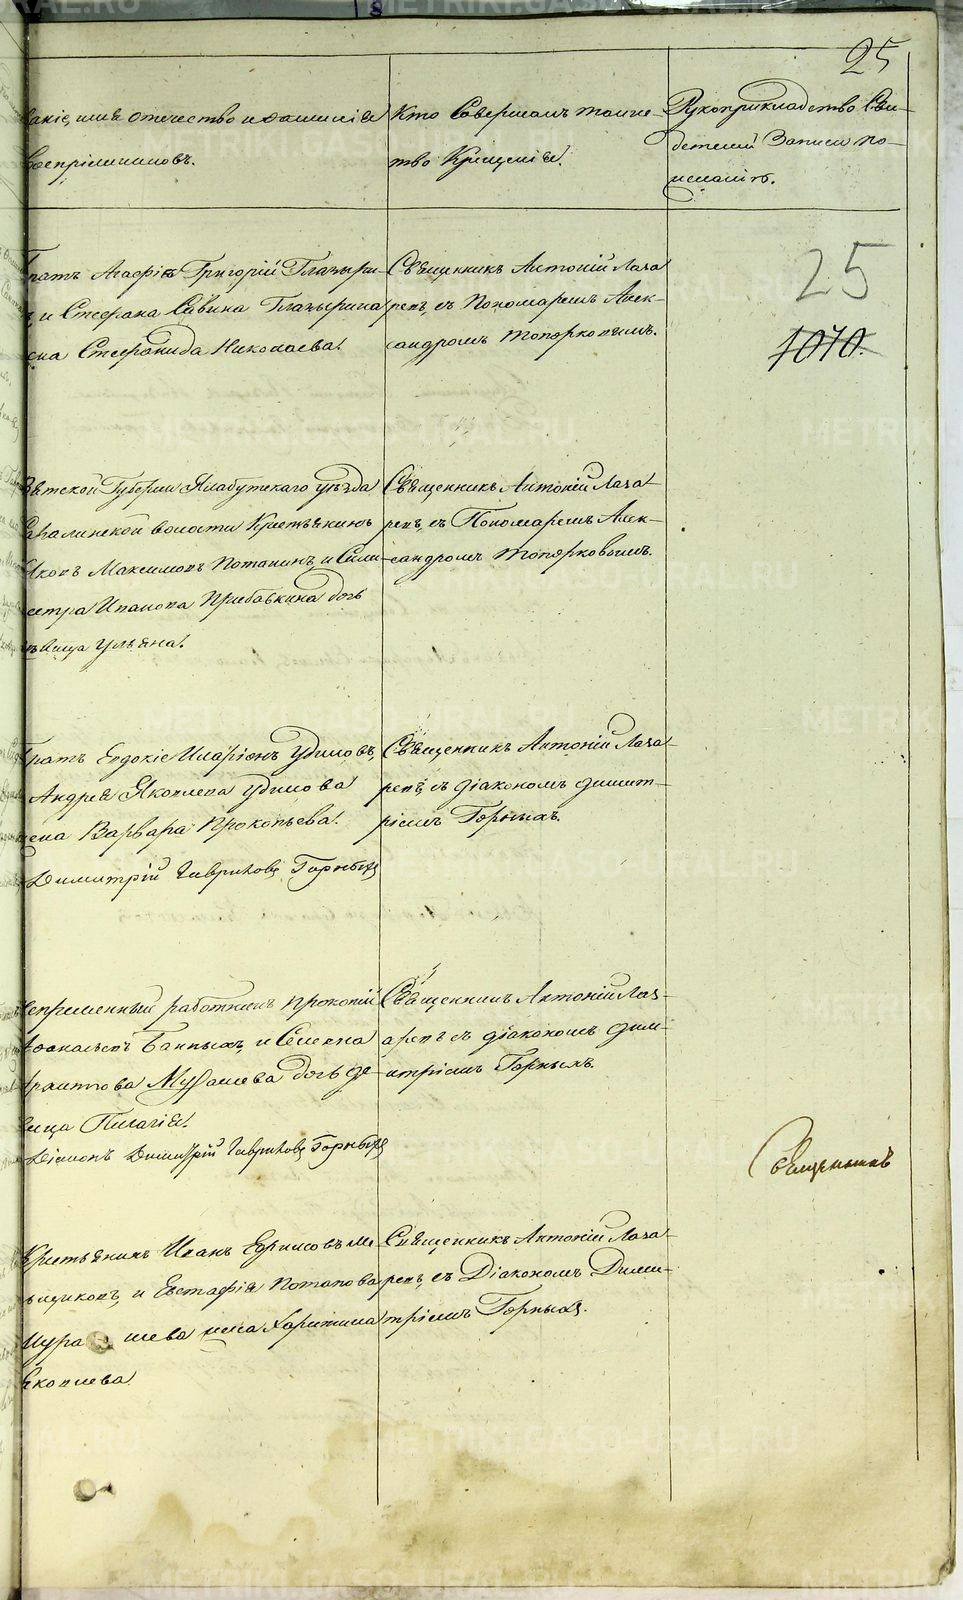 25
ваніе, имя отечество и фамилія
воспріемниковъ.
Кто Совершалъ таинс-
тво Крещенія.
Рукоприкладство Сви-
детелей Записи по-
желанію.
братъ Агафіи Григорій Глазыри-
и Стефана Савина Глазырина
жена Стефанида Николаева.
Священникъ Антоній Лаза
ревъ, съ Пономаремъ Алек-
сандромъ Топорковымъ.
25
1070.
Вятской Губерніи Ялабугскаго уезда
волости Крестьянинъ
Яковъ Максимовъ Потанинъ, и Сили-
вестра Иванова Прибавкина дочь
девица Ульяна.
Священникъ Антоній Лаза-
ревъ, съ Пономаремъ Алек-
сандромъ Топорковымъ.
братъ Евдокіе Иларіонъ Удиловъ,
Андрея Яковлева Удилова
жена Варвара Прокопьева.
Димитрій Гавриловъ Горныхъ
Священникъ Антоній Лаза-
ревъ, съ діакономъ Димит-
ріемъ Горныхъ.
Непременный работникъ Прокопій
и Семена
дочь де-
вица Пелагія.
Діаконъ Димитрій Гавриловъ Горныхъ
Священникъ Антоній Лаз-
аревъ съ діакономъ Дим-
итріемъ Горныхъ.
Священникъ
Крестьянинъ Иванъ Борисовъ Ме-
льщиковъ, и Евстафія Потапова
жена Харитина
Яковлева
Священникъ Антоній Лаза-
ревъ, съ Діакономъ Дими-
тріемъ Горныхъ.
METRIKI.GASO-URAL.RU